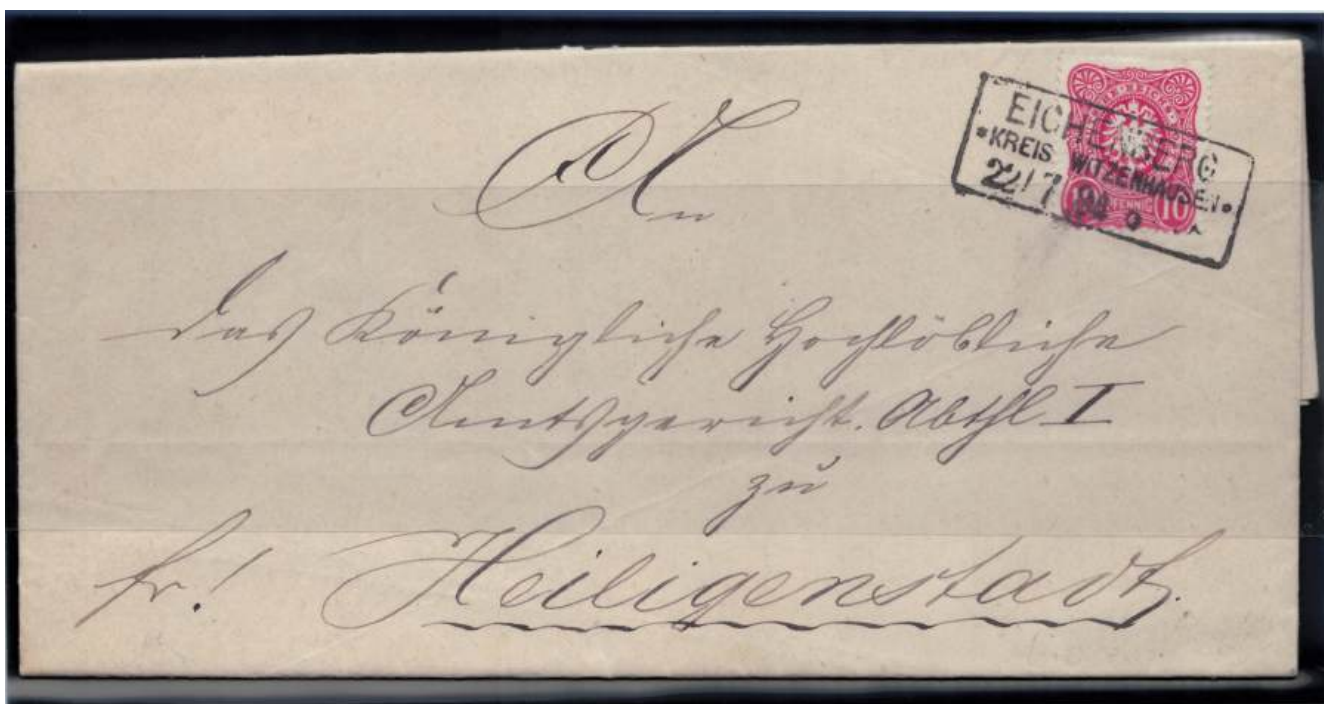 EICHENBERG
*KREIS WITZENHAUSEN*
22/7
PFENNIG 10
An
das Königliche Hochlöbliche
Amtsgericht. Abthl I
zu
fr! Heiligenstadt.